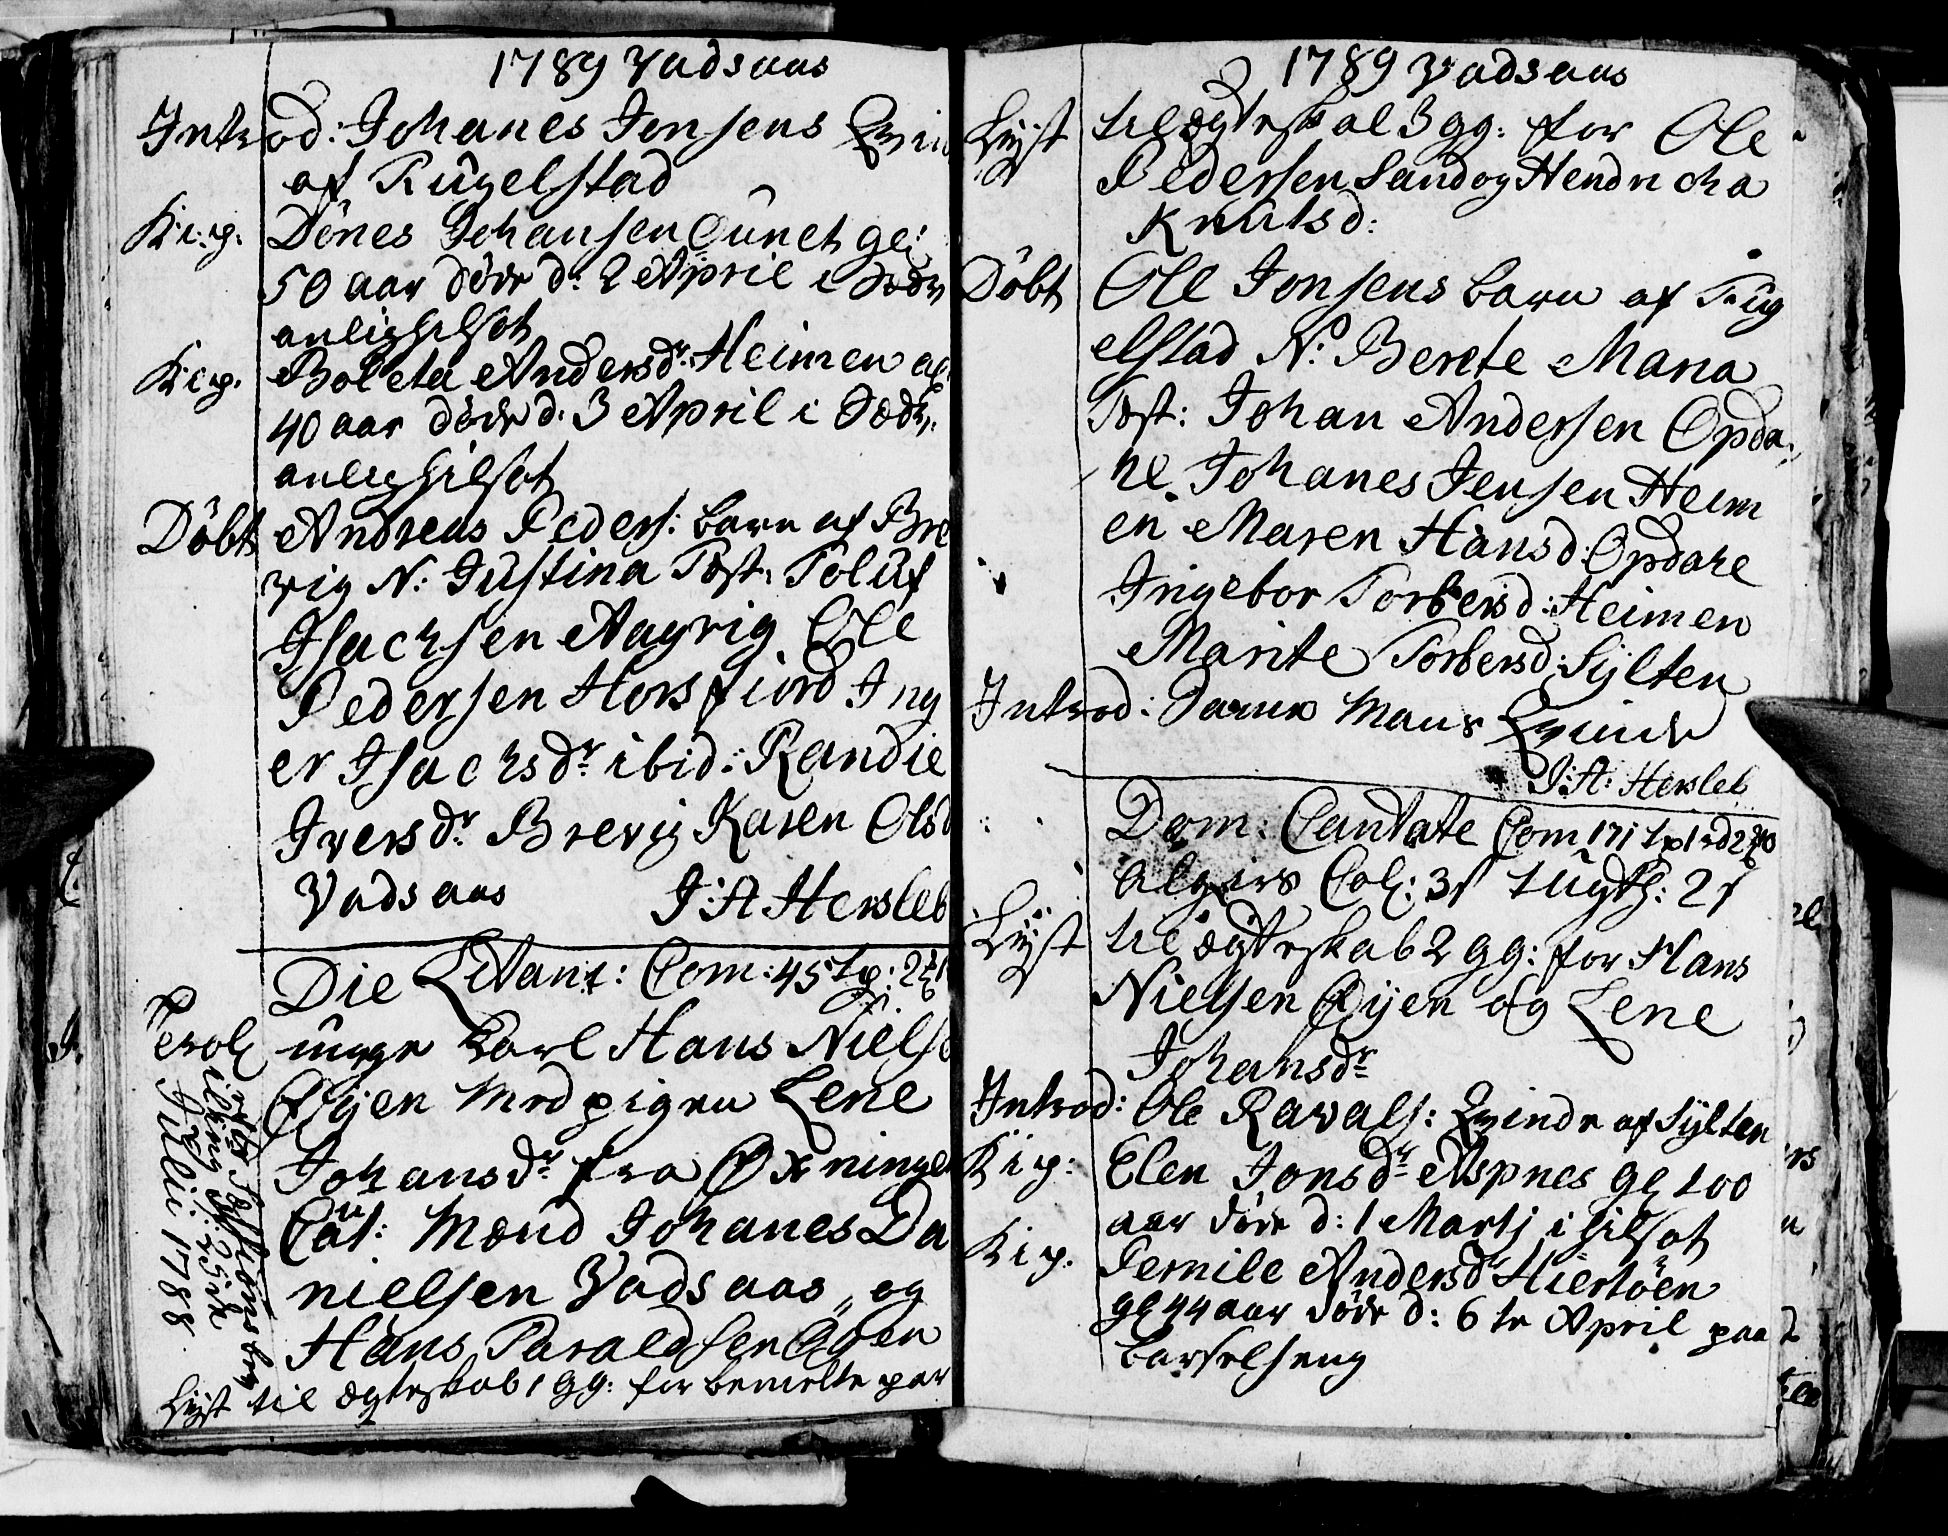 1789 Vadsaas
Introd: Johanes Jonsens Qvin
af Rugelstad
K:i:p. Dönes Johansen gl:
50 aar döde d: 2 April i
anlig hilsot
K:i:p. Boleta Andersdr: Heimen
40 aar döde d. 3 April i
anlig hilsot
Döbt Andreas Peders: barn af Bre
vig N: Justina Test: Toluf
Isachsen Aagvig Ole
Pedersen Horsfiord Ing
er Isachsdr ibid: Randie
Iversdr Brevig Karen Olsd
Vadsaas J:A Hersleb
Die Com: 45 tp:
Trol unge Karl Hans Niels
Öyen med pigen Lene
Johansdr fra Öxninge
Caut: Mænd Johanes Da
nielsen Vadsaas, og
Hans Paraldsen Öyen
Julii 1788
Lyst til ægteskab 1 gg: for bemelte par
1789 Vadsaas
Lyst til ægteskal 3 gg: for Ole
Pedersen Sand og Hendricha
Knutsd:
Döbt Ole Jonsens barn af Rug
elstad N: Berete Maria
Test: Johan Andersen Opda
le Johanes Jensen Heim
en Maren Hansd: Opdale
Ingebor Torbersd: Heimen
Marite Torbersd: Sylten
Introd: Samme Mans Qvinde
J:A: Hersleb
Dom: Cantate Com 171
Col: 31
Lyst til ægteskab 2 gg: for Hans
Nielsen Öyen og Lene
Johansdr
Introd: Ole Ravals: Qvinde af Sylten
K:i:p: Elen Jonsdr Aspnes gl 100
aar döde d: 1 Martj i hilsot
K:i:p. Pernile Andersdr Hiertöen
gl 44 aar döde d: 6te April paa
barselseng